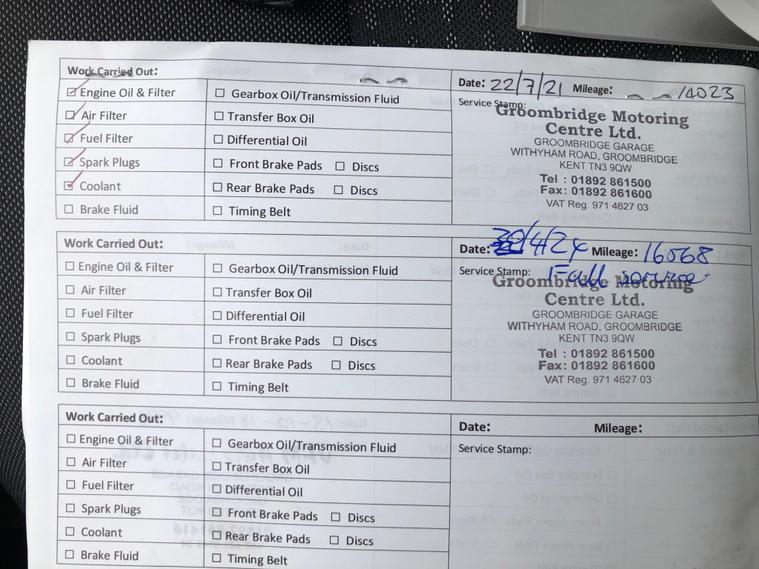 Work Carried Out:
☑ Engine Oil & Filter
☑ Air Filter
☑ Fuel Filter
☑ Spark Plugs
☑ Coolant
☐ Brake Fluid
☐ Gearbox Oil/Transmission Fluid
☐ Transfer Box Oil
☐ Differential Oil
☐ Front Brake Pads ☐ Discs
☐ Rear Brake Pads ☐ Discs
☐ Timing Belt
Date: 22/7/21 Mileage: 14023
Service Stamp:
Groombridge Motoring
Centre Ltd.
GROOMBRIDGE GARAGE
WITHYHAM ROAD, GROOMBRIDGE
KENT TN3 9QW
Tel : 01892 861500
Fax: 01892 861600
VAT Reg. 971 4627 03
Work Carried Out:
☐ Engine Oil & Filter
☐ Air Filter
☐ Fuel Filter
☐ Spark Plugs
☐ Coolant
☐ Brake Fluid
☐ Gearbox Oil/Transmission Fluid
☐ Transfer Box Oil
☐ Differential Oil
☐ Front Brake Pads ☐ Discs
☐ Rear Brake Pads ☐ Discs
☐ Timing Belt
Date: /4/24 Mileage: 16068
Service Stamp: Full service
Groombridge Motoring
Centre Ltd.
GROOMBRIDGE GARAGE
WITHYHAM ROAD, GROOMBRIDGE
KENT TN3 9QW
Tel : 01892 861500
Fax: 01892 861600
VAT Reg. 971 4627 03
Work Carried Out:
☐ Engine Oil & Filter
☐ Air Filter
☐ Fuel Filter
☐ Spark Plugs
☐ Coolant
☐ Brake Fluid
☐ Gearbox Oil/Transmission Fluid
☐ Transfer Box Oil
☐ Differential Oil
☐ Front Brake Pads ☐ Discs
☐ Rear Brake Pads ☐ Discs
☐ Timing Belt
Date: Mileage:
Service Stamp: